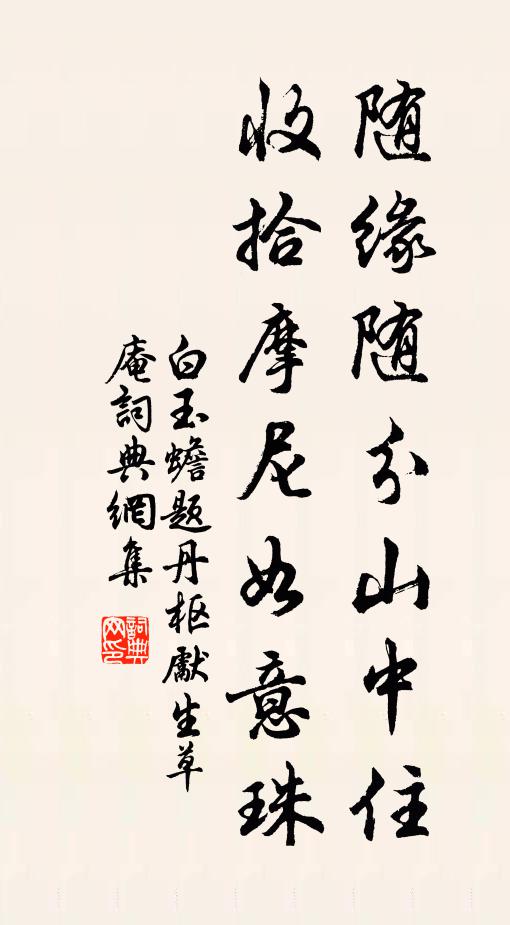 随缘随分山中住
收拾摩尼如意珠
白玉蟾题丹枢獻生草
庵詞典網集
詞典网印